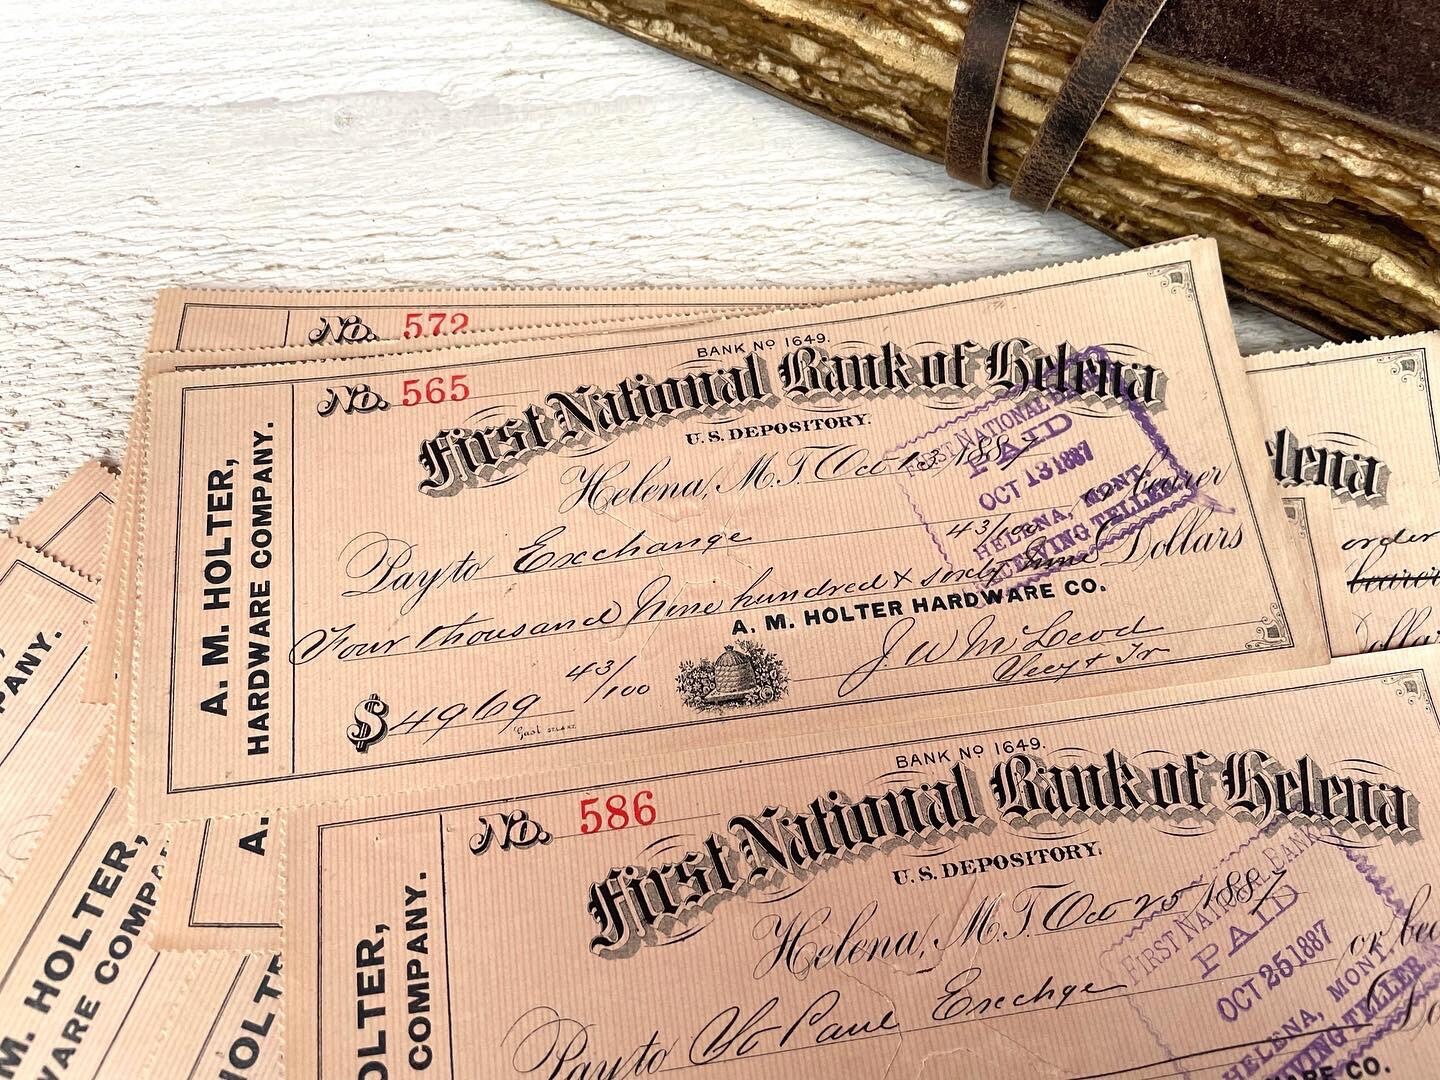 No. 572
BANK No 1649.
No. 565
First National Bank of Helena
U.S. DEPOSITORY.
Helena, M.T. Oct 13 1887
Pay to Exchange or bearer
43/100
Four thousand Nine hundred & sixty Nine Dollars
A. M. HOLTER HARDWARE CO.
J W McLeod
Secy & Tr
$4969 43/100
A. M. HOLTER,
HARDWARE COMPANY.
FIRST NATIONAL
PAID
OCT 13 1887
HELENA, MONT.
TELLER
elena
order
bearer
Dolla
BANK No 1649.
No. 586
First National Bank of Helena
U.S. DEPOSITORY.
Helena, M.T. Oct 25 1887
Pay to St Paul Exchge or bea
Do
RE CO.
OLTER,
COMPANY.
FIRST NATIONAL BANK
PAID
OCT 25 1887
HELENA, MONT.
VING TELLER
PANY.
A.
M. HOLTER,
WARE COMPA
HOLT